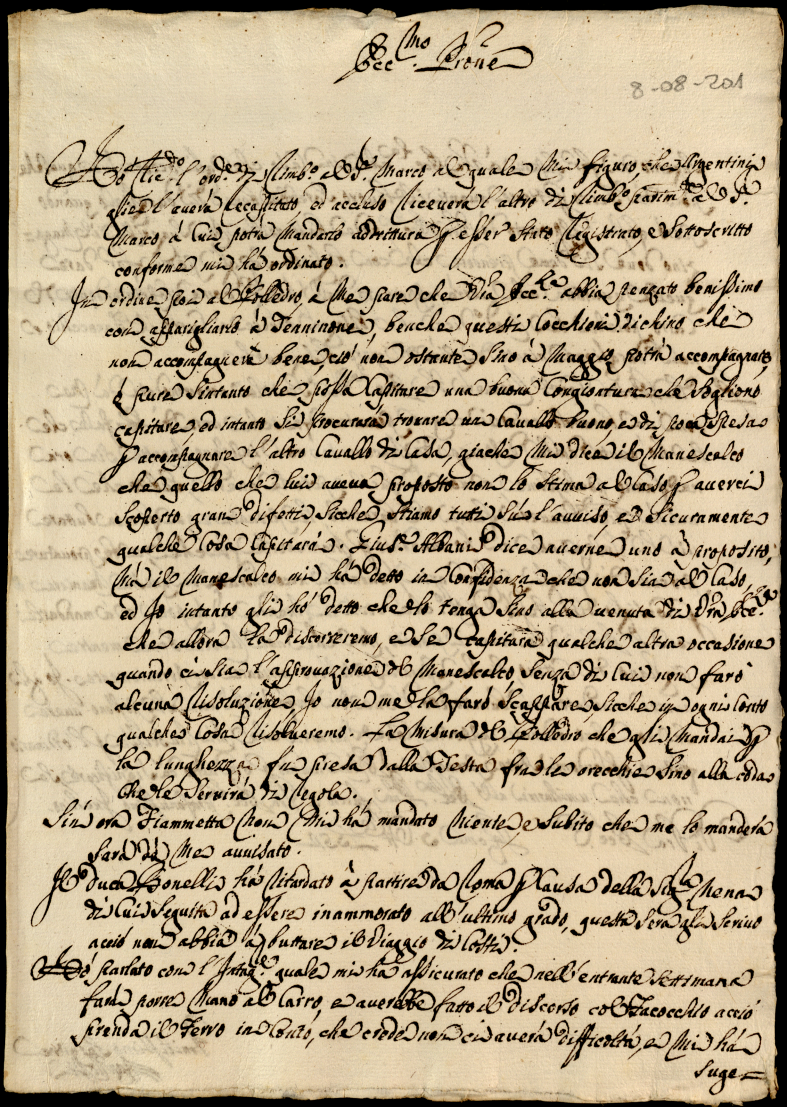 Ecc.mo Prone
8-08-201
Hò ric.do l'ord.e di Rimb.o al S.r Marco al quale mi figuro, che Argentini
gliel'averà recapitato ed accluso riceverà l'altro di Rimb.o parim.te al S.r
Marco à cui potrà mandarlo addrittura p. esser stato registrato, e sottoscritto
conforme mi hà ordinato.
In ordine poi al Polledro, à me pare che V'ra Ecc.za abbia penzato benissimo
con apparigliarlo à Tenninone, benche questi Cocchioni dichino che
non accompagnerà bene, ciò non ostante sino à Maggio potrà accompagnare,
ò pure sintanto che possa capitare una buona congiontura che sogliono
capitare, ed intanto si procurarà trovare un Cavallo buono, e di poca spesa
p accompagnare l'altro Cavallo di Casa, giache mi dice il Manescalco
che quello che lui aveva proposto non lo stima al caso p averci
scoperto gran difetti, sicche stiamo tutti sù l'avviso, e sicuramente
qualche cosa capitarà. Gius.e Albani dice averne uno à proposito,
mà il Manescalco mi hà detto in confidenza che non sia al caso,
ed Io intanto gli hò detto che lo tenga sino alla venuta di V'ra Ecc.za
che allora la discorreremo, e se capitarà qualche altra occasione
quando ci sia l'approvazione del Manescalco, senza di lui non farò
alcuna risoluzione, Io non me la farò scappare, sicche in ogni conto
qualche cosa risolveremo. La misura del Polledro che gli mandai p
la lunghezza fu presa dalla Testa fra le orecchie sino alla coda
che le servirà di regola.
Sin' ora Fiammetta non mi hà mandato niente, e subito che me lo manderà
sarà da me avvisato.
Il Duca Bonelli hà ritardato à partire da Roma p causa della Sig.ra Nena
di cui seguita ad essere innamorato all'ultimo grado, questa sera gli scrivo
acciò non abbia à buttare il viaggio di costì.
Hò parlato con l' quale mi hà assicurato che nell'entrante settimana
farà porre mano al Carro, e averebbe fatto il discorso col Facocchio acciò
prenda il Ferro in conto, che crede non ci averà difficoltà, e mi hà
suge=